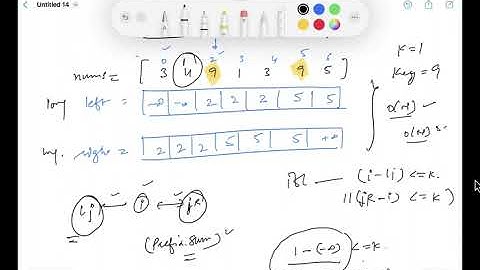 Untitled 14
0 1 2 3 4 5 6
nums = [ 3 4 9 1 3 9 5 ]
K=1
Key = 9
left = -∞ -∞ 2 2 2 5 5
O(N)
O(N)
right = 2 2 2 5 5 5 +∞
(i-lj) <= K.
|| (jR-i) <= K)
lj i jR
(Prefix Sum)
1-(-∞) <= K.